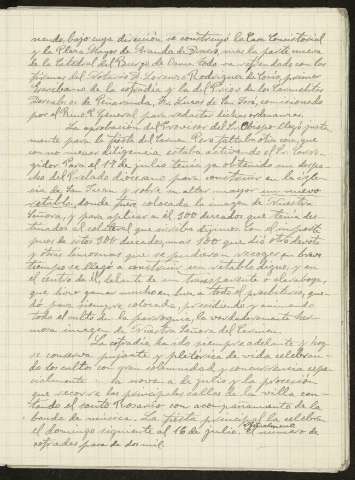 riendo, bajo cuya dirección se construyó la Casa Consistorial
y la Plaza Mayor de Aranda de Duero, mas la parte nueva
de la Catedral del Burgo de Osma. Todo va refrendado con las
firmas del Notario D. Lorenzo Rodríguez de Coria, primer
Escribano de la cofradía y la del Prior de los Carmelitas
Descalzos de Peñaranda, Fr. Lucas de San José, comisionado
por el Rmo. P. General para redactar dichas ordenanzas.
La aprobación del Provisor del Sr. Obispo llegó justa-
mente para la fiesta del Carmen. Pero faltaba otra cosa, que
con no menos diligencia estaba activando el Sr. Corre-
gidor. Para el 17 de julio tenía ya obtenido un despa-
cho del Prelado diocesano para construir en la igle-
sia de San Juan y sobre su altar mayor un nuevo
retablo, donde fuera colocada la imagen de Nuestra
Señora, y para aplicar a él 500 ducados que tenía des-
tinados al colateral que arriba dijimos. Con el importe
pues de estos 500 ducados, mas 500 que dió otro devoto
y otras limosnas que se pudieron recoger en breve
tiempo se llegó a construir un retablo digno, y en
el centro de él, delante de un transparente o claraboya,
que hizo ganar mucho en luz a todo el presbiterio, que-
dó para siempre colocada, presidiendo y animando
todo el culto de la parroquia, la verdaderamente her-
mosa imagen de Nuestra Señora del Carmen.
La cofradía ha ido siempre adelante y hoy
se conserva pujante y pletórica de vida celebran-
do los cultos con gran solemnidad y concurrencia espe-
cialmente la novena de julio y la procesión
que recorre las principales calles de la villa can-
tando el santo Rosario con acompañamiento de la
banda de música. La fiesta principal la celebra
el domingo siguiente al 16 de julio. El número de
cofrades pasa de dos mil.